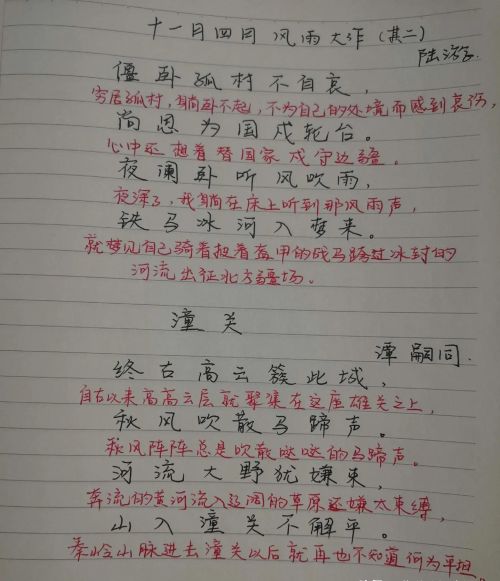 十一月四日 风雨大作（其二）
陆游
僵卧孤村不自哀，
穷居孤村，躺卧不起，不为自己的处境而感到哀伤，
尚思为国戍轮台。
心中还想着替国家戍守边疆。
夜澜卧听风吹雨，
夜深了，我躺在床上听到那风雨声，
铁马冰河入梦来。
就梦见自己骑着披着盔甲的战马跨过冰封的
河流出征北方疆场。
潼关
谭嗣同.
终古高云簇此城，
自古以来高高云层就聚集在这座雄关之上，
秋风吹散马蹄声。
秋风阵阵总是吹散哒哒的马蹄声。
河流大野犹嫌束，
奔流的黄河流入辽阔的草原还嫌太束缚，
山入潼关不解平。
秦岭山脉进去潼关以后就再也不知道何为平坦